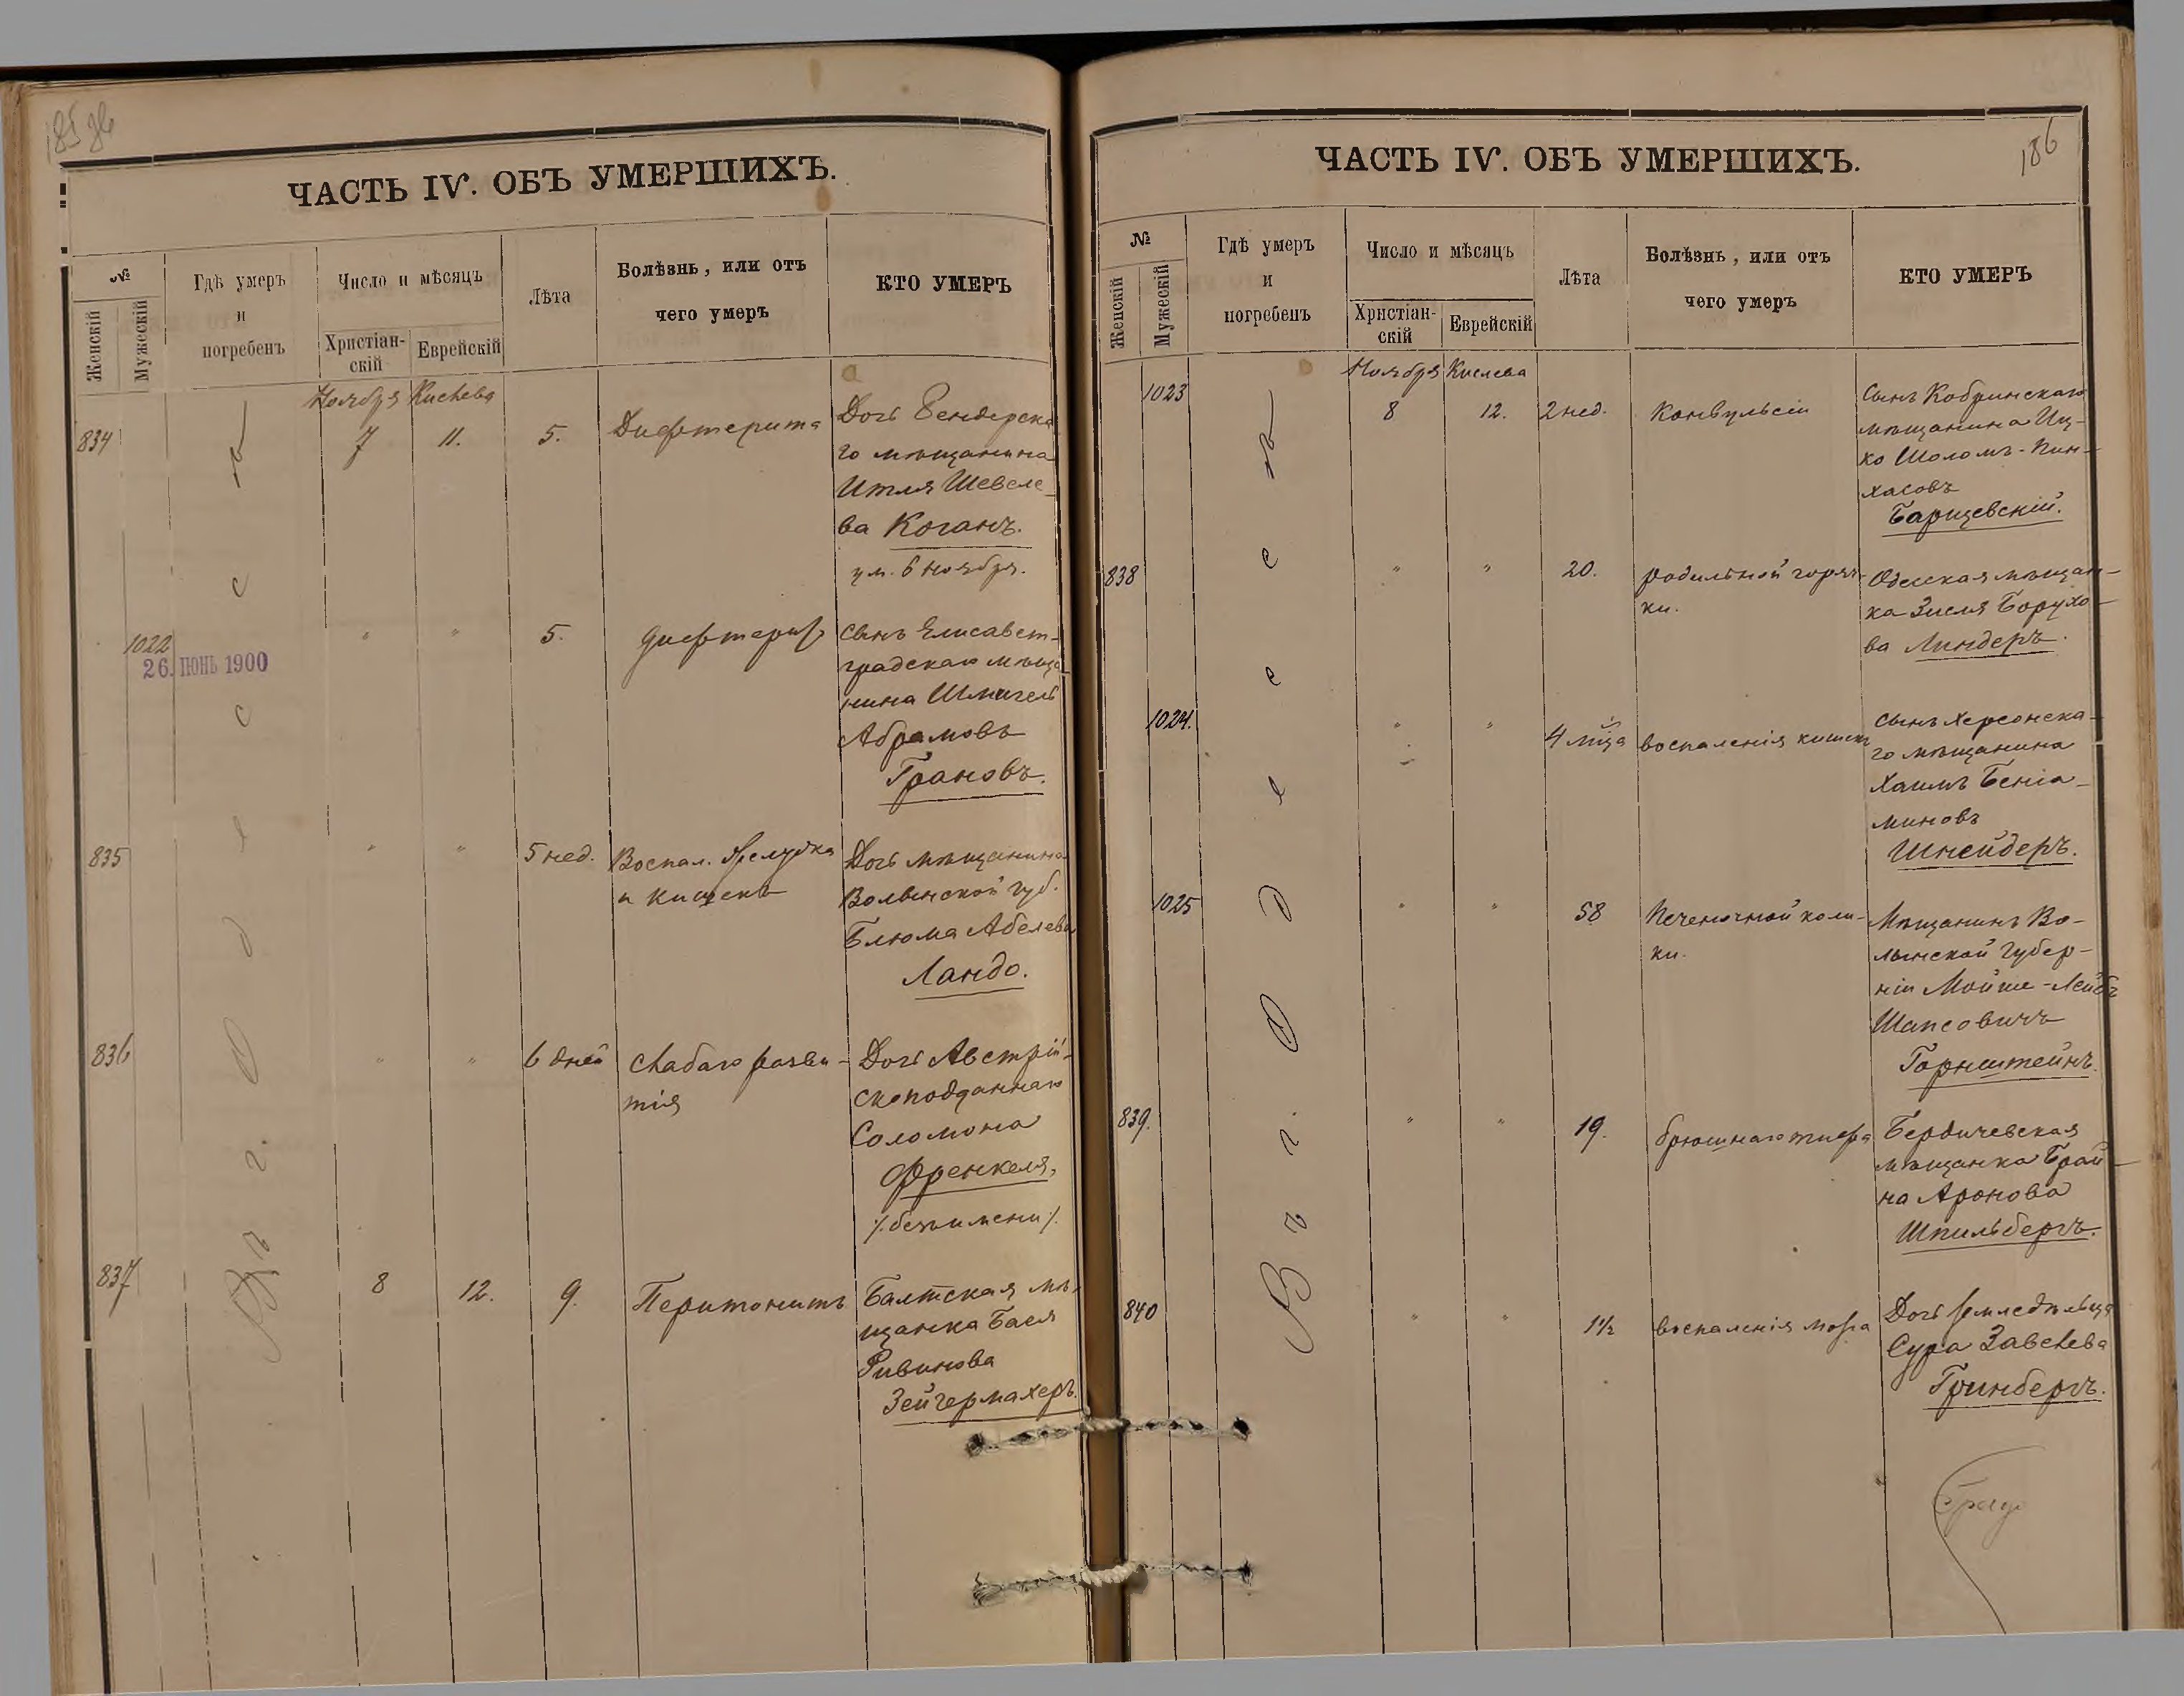 185 об
ЧАСТЬ IV. ОБЪ УМЕРШИХЪ.
№
Женскій
Мужескій
Гдѣ умеръ
и
погребенъ
Число и мѣсяцъ
Христіан-
скій
Еврейскій
Лѣта
Болѣзнь, или отъ
чего умеръ
КТО УМЕРЪ
Въ г. Одессѣ
Ноября Кислева
834
7
11.
5.
Дифтерита
Дочь Бендерска
го мѣщанина
Итля Шевеле-
ва Коганъ.
ум. 6 ноября.
1022
26. ІЮНЬ 1900
"
"
5.
дифтерит
Сынъ Елисавет-
градскаго мѣща
нина Шмигель
Абрамовъ
Грановъ.
835
"
"
5 нед.
Воспал. желудка
и кишекъ
Дочь мѣщанина
Волынской губ.
Блюма Абелева
Ландо.
836
"
"
6 дней
слабаго разви-
тія
Дочь Австрій-
скоподданнаго
Соломона
Френкеля,
/. безъ имени /.
837
8
12.
9.
Перитонитъ
Балтская мѣ-
щанка Бася
Ривинова
Зейгермахеръ.
186
ЧАСТЬ IV. ОБЪ УМЕРШИХЪ.
№
Женскій
Мужескій
Гдѣ умеръ
и
погребенъ
Число и мѣсяцъ
Христіан-
скій
Еврейскій
Лѣта
Болѣзнь, или отъ
чего умеръ
КТО УМЕРЪ
Въ г. Одессѣ
Ноября Кислева
1023
8
12.
2 нед.
Конвульсіи
Сынъ Кобринскаго
мѣщанина Иц-
ко Шоломъ-Пин-
хасовъ
Барщевскій.
838
"
"
20.
родильной горяч-
ки.
Одесская мѣщан-
ка Зисля Борухо-
ва Линдеръ.
1024.
"
"
4 мца
воспаленія кишекъ
Сынъ Херсонска-
го мѣщанина
Хаимъ Беніа-
миновъ
Шнейдеръ.
1025
"
"
58
Печеночной коли-
ки.
Мѣщанинъ Во-
лынской Губер-
ніи Мойше-Лейбъ
Шапсовичъ
Горнштейнъ.
839.
"
"
19.
брюшнаго тифа
Бердичевская
мѣщанка Брай-
на Аронова
Шпильбергъ.
840
"
"
1 1/2
воспаленія мозга
Дочь земледѣльца
Сура Завелева
Гринбергъ.